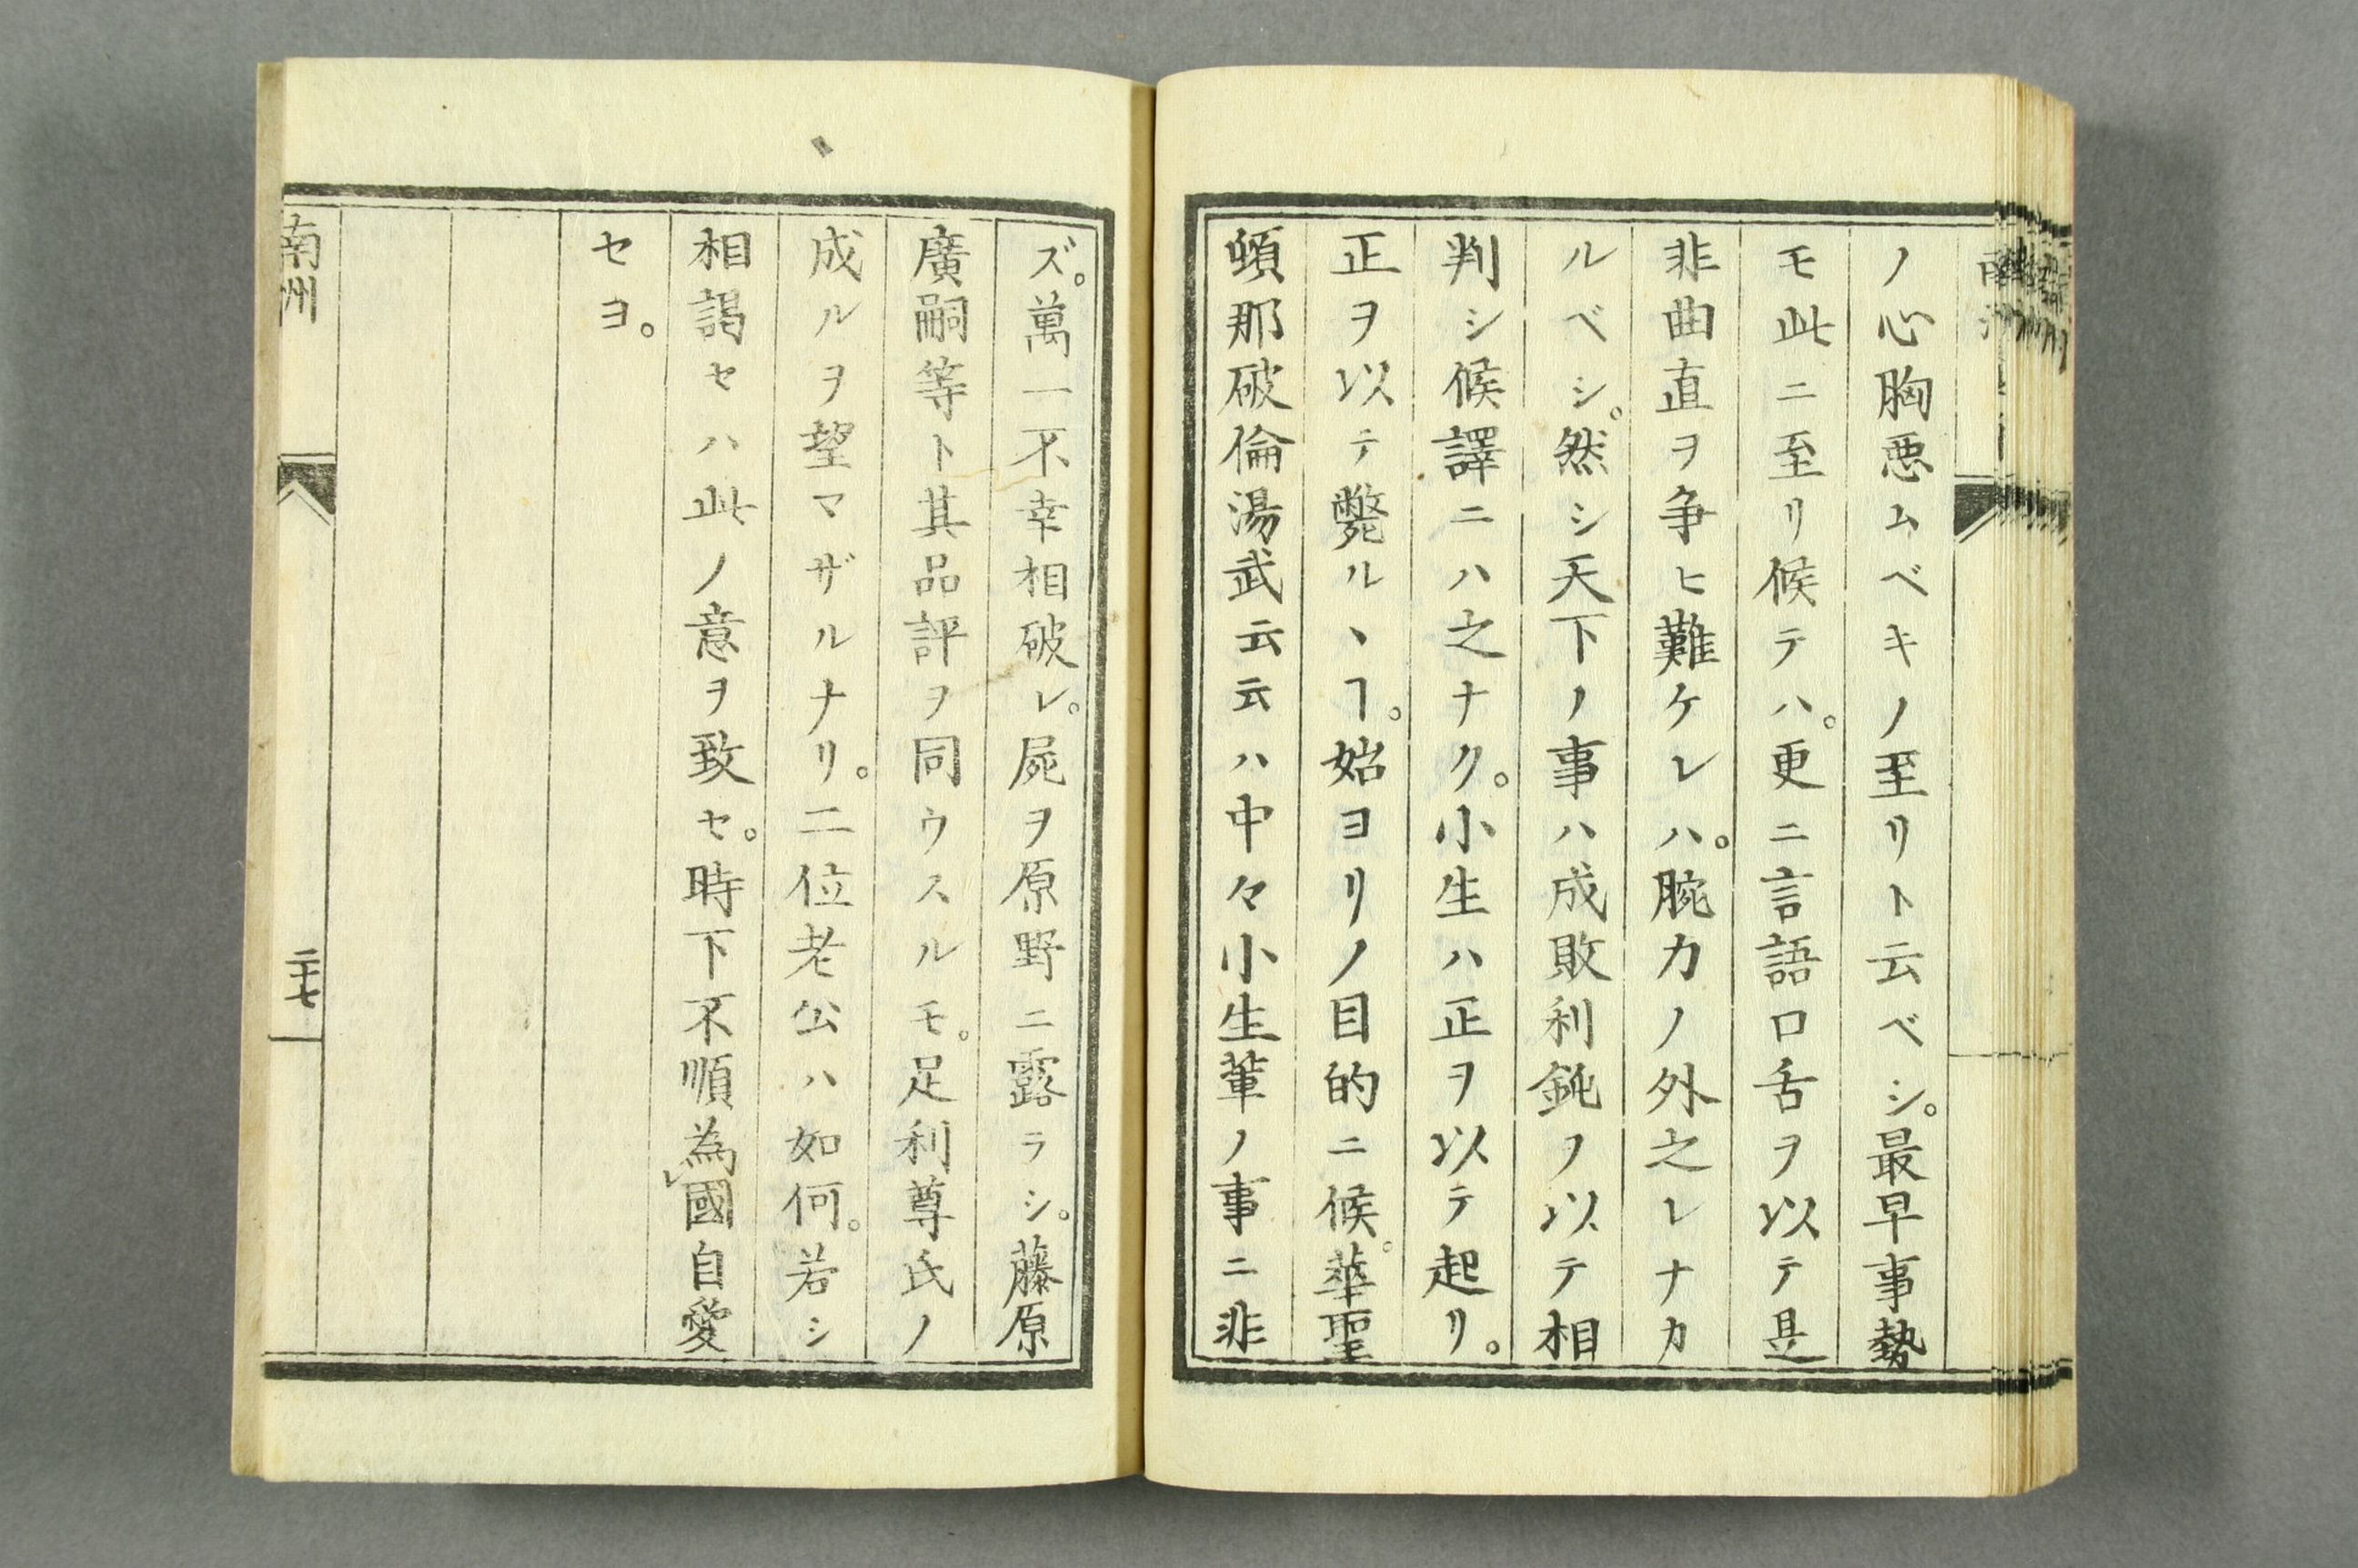 ノ心胸悪ムベキノ至リト云ベシ。最早事勢
モ此ニ至リ候テハ。更ニ言語口舌ヲ以テ是
非曲直ヲ争ヒ難ケレハ。腕力ノ外之レナカ
ルベシ。然シ天下ノ事ハ成敗利鈍ヲ以テ相
判シ候譯ニハ之ナク。小生ハ正ヲ以テ起リ。
正ヲ以テ斃ルヽヿ。始ヨリノ目的ニ候。華聖
頓那破倫湯武云云ハ中々小生輩ノ事ニ非
ズ。萬一不幸相破レ。屍ヲ原野ニ露ラシ。藤原
廣嗣等ト其品評ヲ同ウスルモ。足利尊氏ノ
成ルヲ望マザルナリ。二位老公ハ如何。若シ
相謁セハ此ノ意ヲ致セ。時下不順為國自愛
セヨ。
南洲
二十七